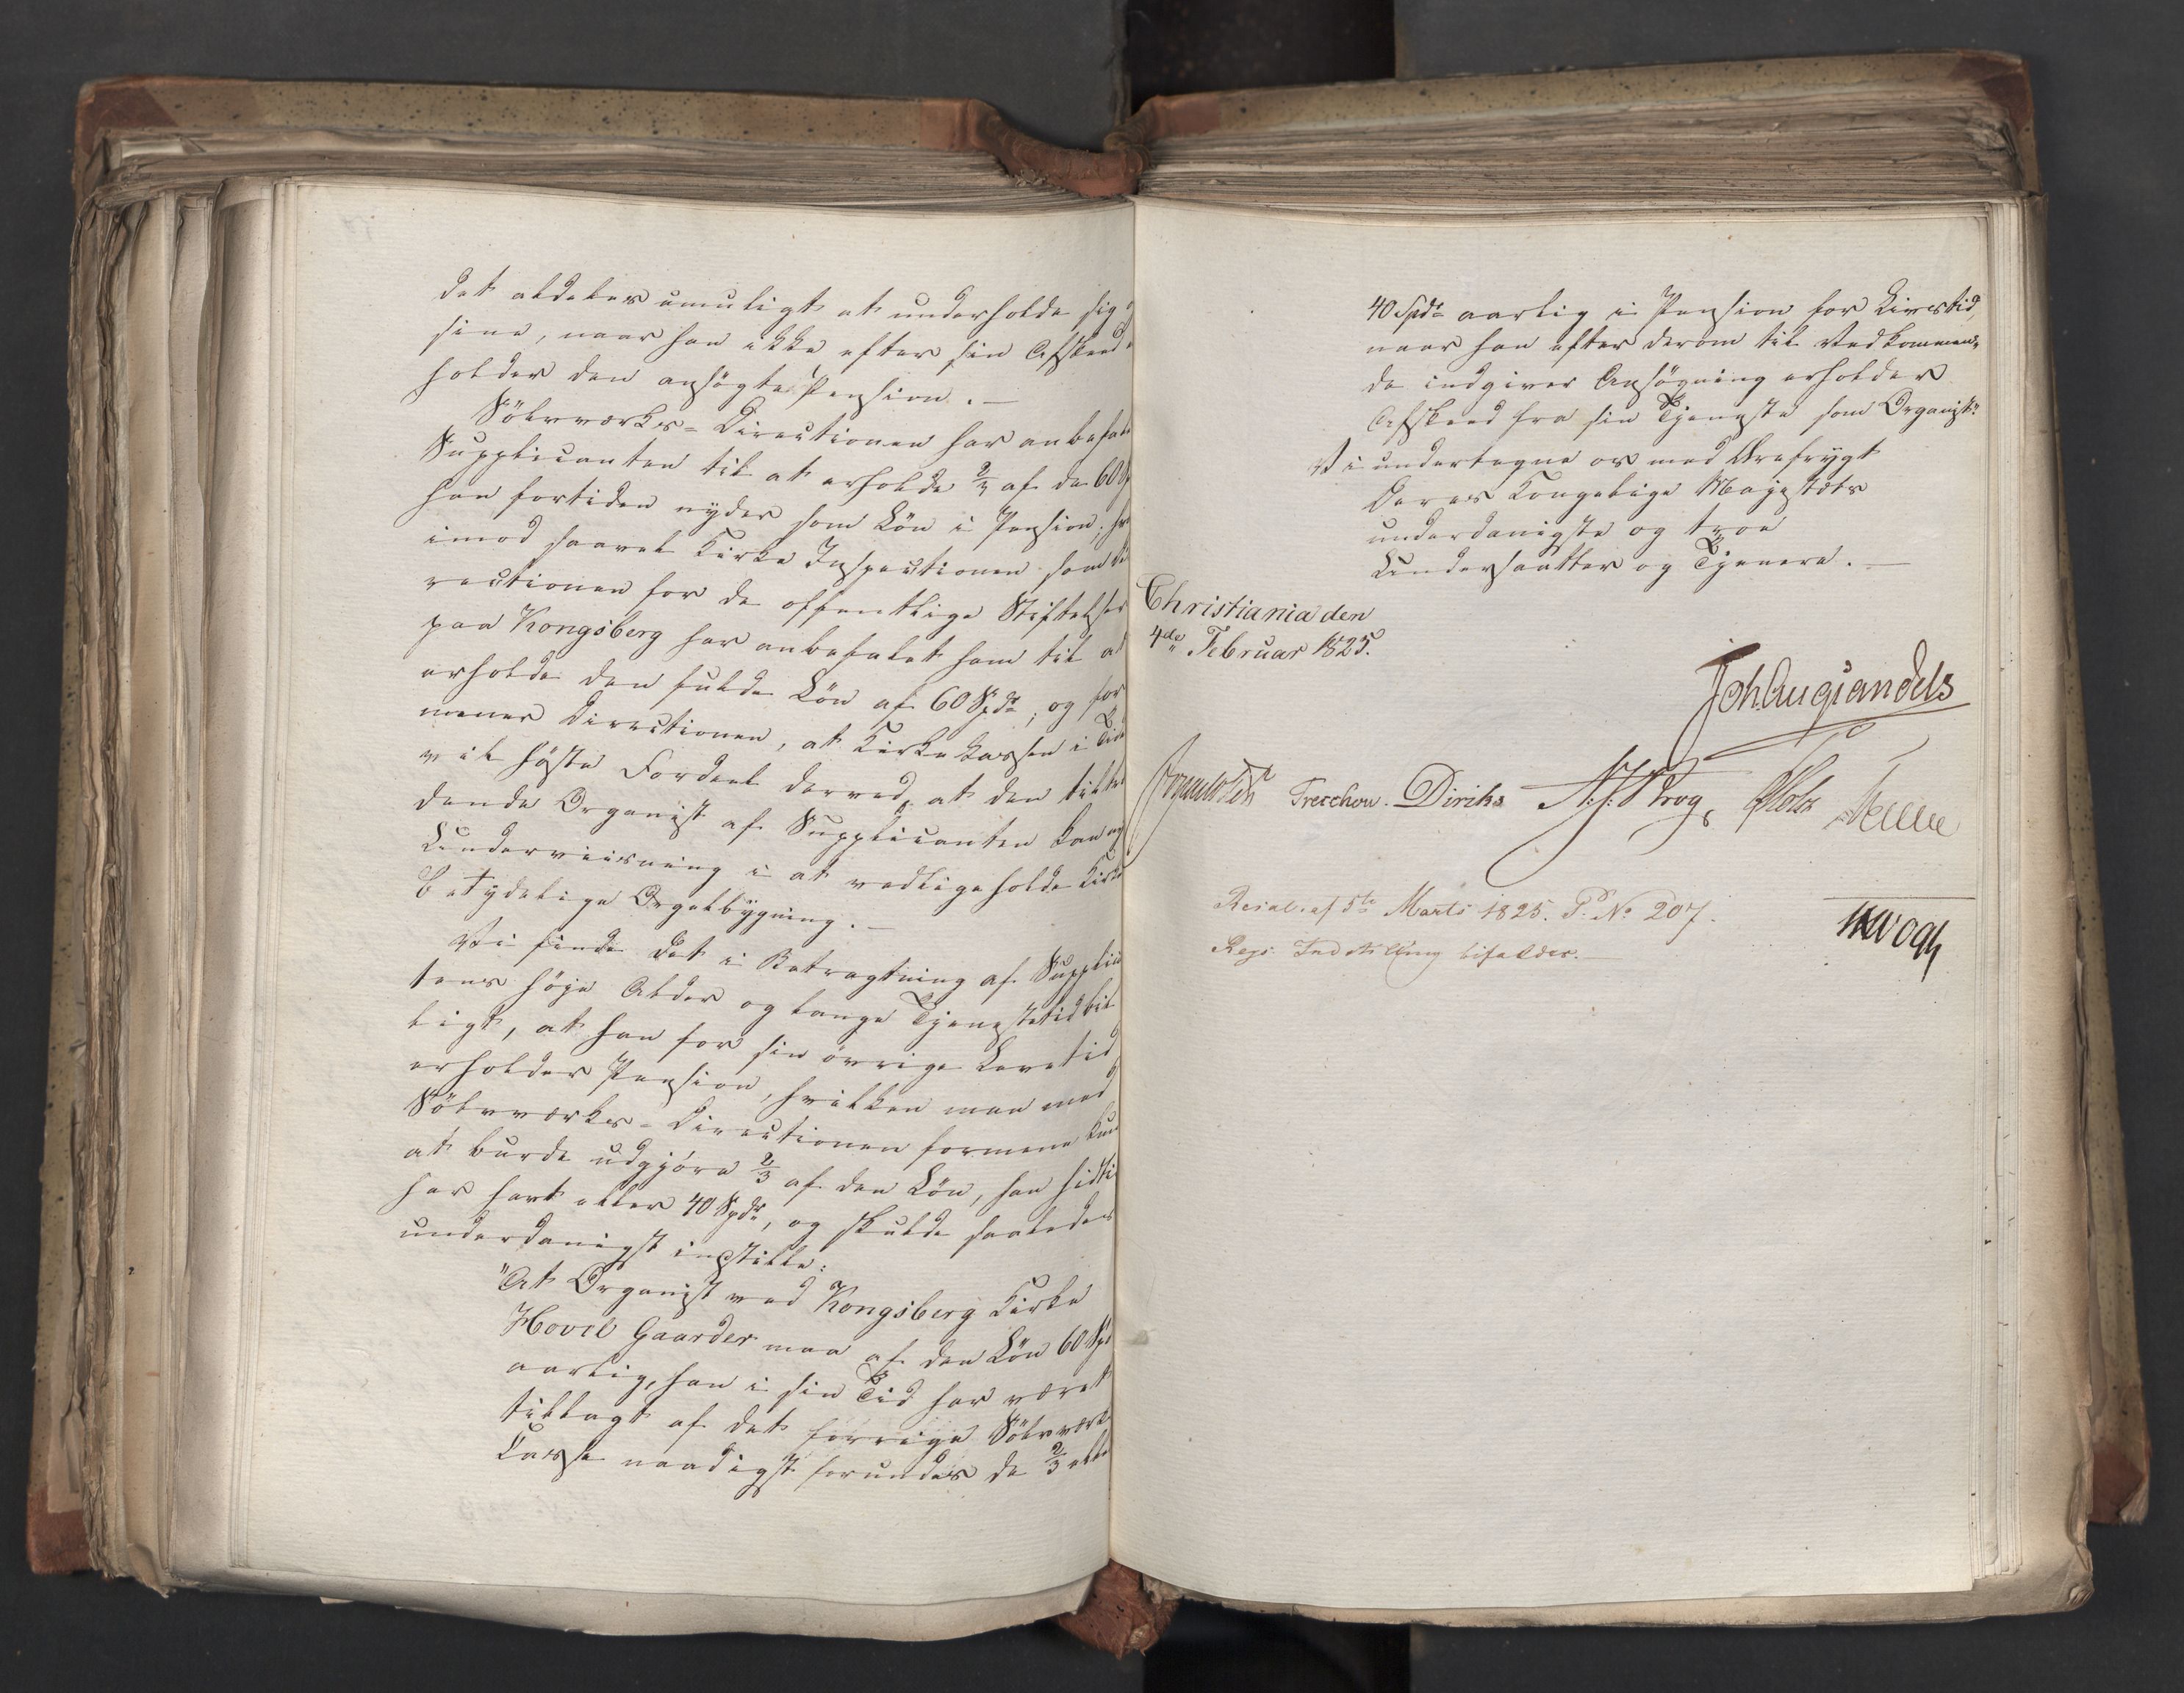 det aldeles umuligt at underholde sig
sine, naar han ikke efter sin Afskeed
holder den ansögte Pension. —
Sölvværks-Directionen har anbefalet
Supplicanten til at erholde 2/3 af de 60
han fortiden nyder som Lön i Pension;
imod saavel Kirke Inspectionen som Di
rectionen for de offentlige Stiftelser
paa Kongsberg har anbefalet ham til at
erholde den fulde Lön af 60 Spdr, og for
mener Directionen, at Kirkekassen i Tide
vil höste Fordeel derved, at den tiltræ
dende Organist af Supplicanten kan
Underviisning i at vedligeholde Kirkens
betydelige Orgelbygning. —
Vi finde det i Betragtning af Supplican
tens höje Alder og lange Tjenstetid bil
ligt, at han for sin övrige Levetid
erholder Pension, hvilken man med
Sölvværks-Directionen formene kun
at burde udgjöre 2/3 af den Lön, han hidtil
har havt eller 40 Spdr, og skulde saaledes
underdanigst indstille:
"At Organist ved Kongsberg Kirke
Hovel Gaarder maa af den Lön 60 Spd
aarlig, han i sin Tid har været
tillagt af det forrige Sölvværks
Casse naadigst forundes de 2/3 eller
40 Spdr aarlig i Pension for Livstid,
naar han efter derom til Vedkommen-
de indgiven Ansögning erholder
Afskeed fra sin Tjenste som Organist."
Vi undertegne os med Ærefrygt
Deres Kongelige Majestæts
underdanigste og troe
Undersaatter og Tjenere. —
Christiania den
4de Februar 1825.
Joh Aug Sandels
Sommerhielm Treschow. Diriks N. J. Krog, P Motzf
Resol. af 5te Marts 1825. P. No 207.
Regj. Indstilling bifaldes. —
Vogt